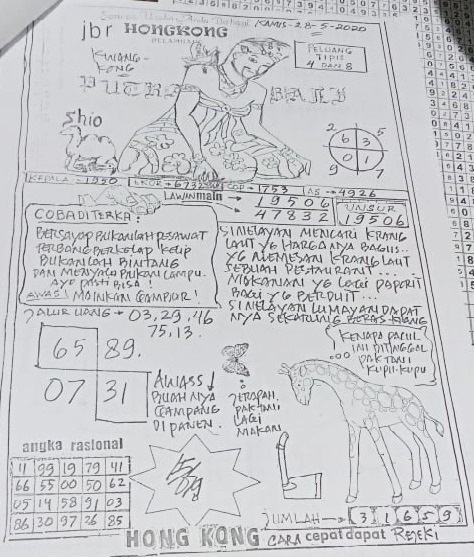 KAMIS - 28-5-2020
jbr HONGKONG
KWANG-
FONG
PELUANG
TIPIS
4 DAN 8
PUTRA
Shio
2 5
6 3
0 1
9 7
KEPALA → 1920 EKOR → 6732 COP → 1753 AS → 4926
LAWIN main → 19506
47832
UNSUR
19506
COBA DITERKA?
BERSAYAP BUKANLAH PESAWAT
TERBANG BERKELAP KELIP
BUKANLAH BINTANG
DAN MENYALA BUKAN LAMPU.
AYO PASTI BISA!
AWAS! MAINKAN GAMPIUR!
SINELAYAN MENCARI KRANG
LAUT YG HARGANYA BAGUS...
YG MEMESAN KRANG LAUT
SEBUAH RESTAURANT....
MAKANAN YG LAGI DAPERIT
BAGI YG BERDUIT...
SINELAYAN LUMAYAN DAPAT
NYA SEKARUNG BERAS KRANG
JALUR UANG → 03,29,46
75,13.
65 89.
07 31
AWASS!
BUAHNYA
GAMPANG
DI PANEN.
TERAPAH.
PAK TANI
LAGI
MAKAN
KENAPA PACUL
INI DITINGGAL
PAK TANI
KUPU-KUPU
angka rasional
11 99 19 79 41
66 55 00 50 62
05 14 58 91 03
86 30 97 26 85
JUMLAH → 3 1 6 5 9
HONG KONG CARA cepat dapat REJEKI